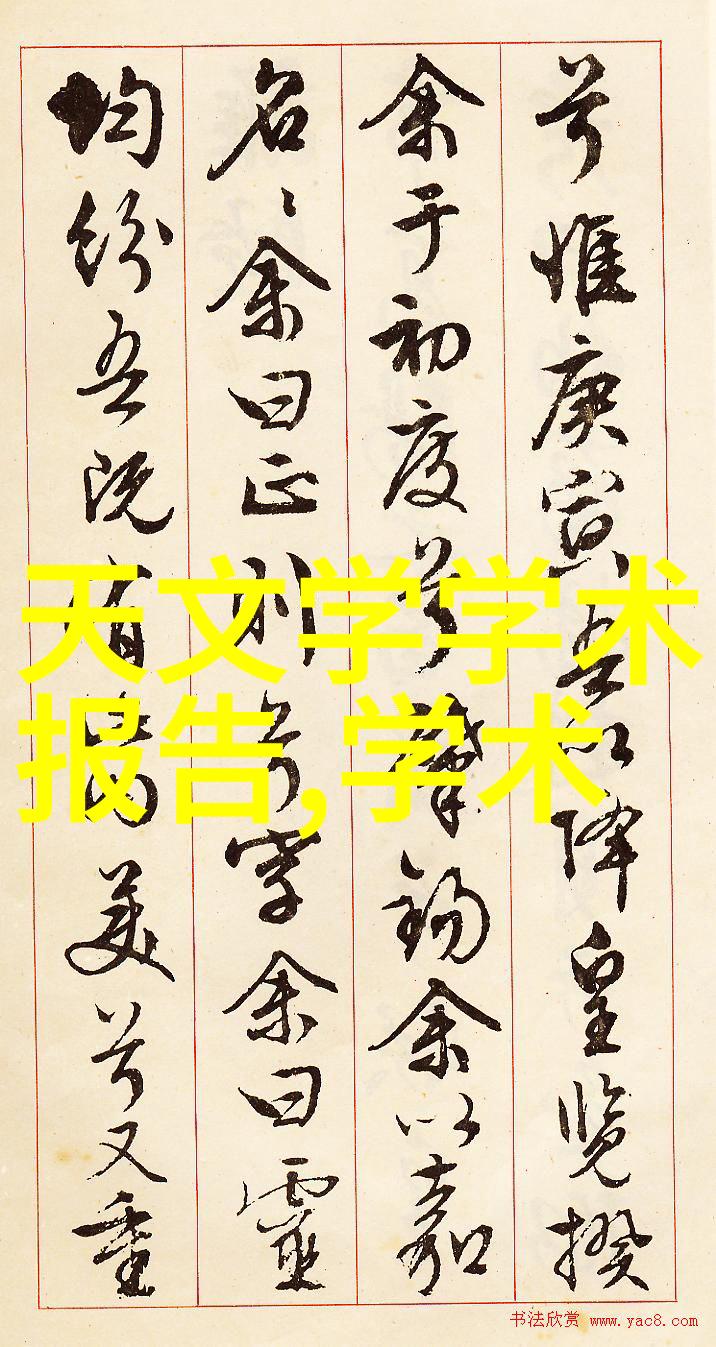 兮惟庚寅吾以降皇览揆
余于初度兮肇锡余以嘉
名〻余曰正则兮字余曰靈
均纷吾既有此内美兮又重
天文学学术
报告,学术
书法欣赏 www.yac8.com